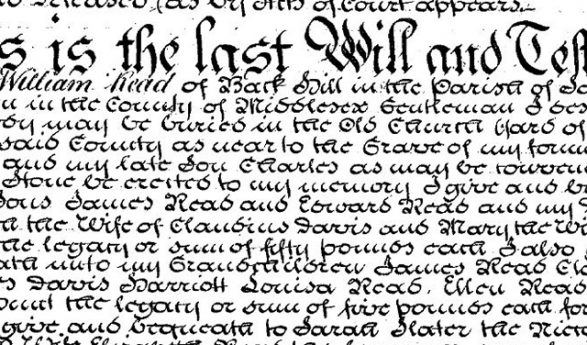 of Court appears
s is the last Will and Tes
William Read of Back Hill in the Parish of
in the County of Middlesex Gentleman I des
may be buried in the Old Church Yard of
said County as near to the Grave of my form
and my late Son Charles as may be conven
Stone be erected to my memory I give and b
Sons James Read and Edward Read and my
the Wife of Claudius Davis and Mary the Wi
the legacy or sum of fifty pounds each I also
ath unto my Grandchildren James Read E
es Davis Harriott Louisa Read Ellen Read
the legacy or sum of five pounds each fo
give and bequeath to Sarah Slater the Niece
Wife Elizabeth Read